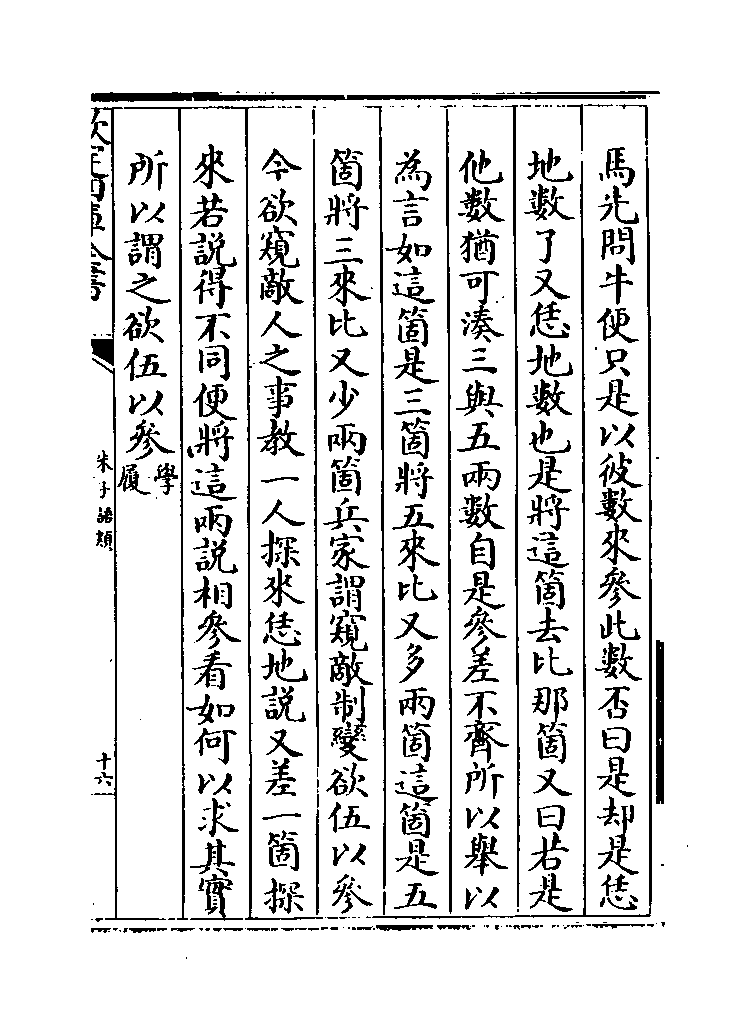 馬先問牛便只是以彼數來參此數否曰是却是恁
地數了又恁地數也是將這箇去比那箇又曰若是
他數猶可湊三與五兩數自是參差不齊所以舉以
為言如這箇是三箇將五來比又多兩箇這箇是五
箇將三來比又少兩箇兵家謂窺敵制變欲伍以參
今欲窺敵人之事教一人探來恁地說又差一箇探
來若說得不同便將這兩說相參看如何以求其實
所以謂之欲伍以參學履
欽定四庫全書
朱子語類
十六